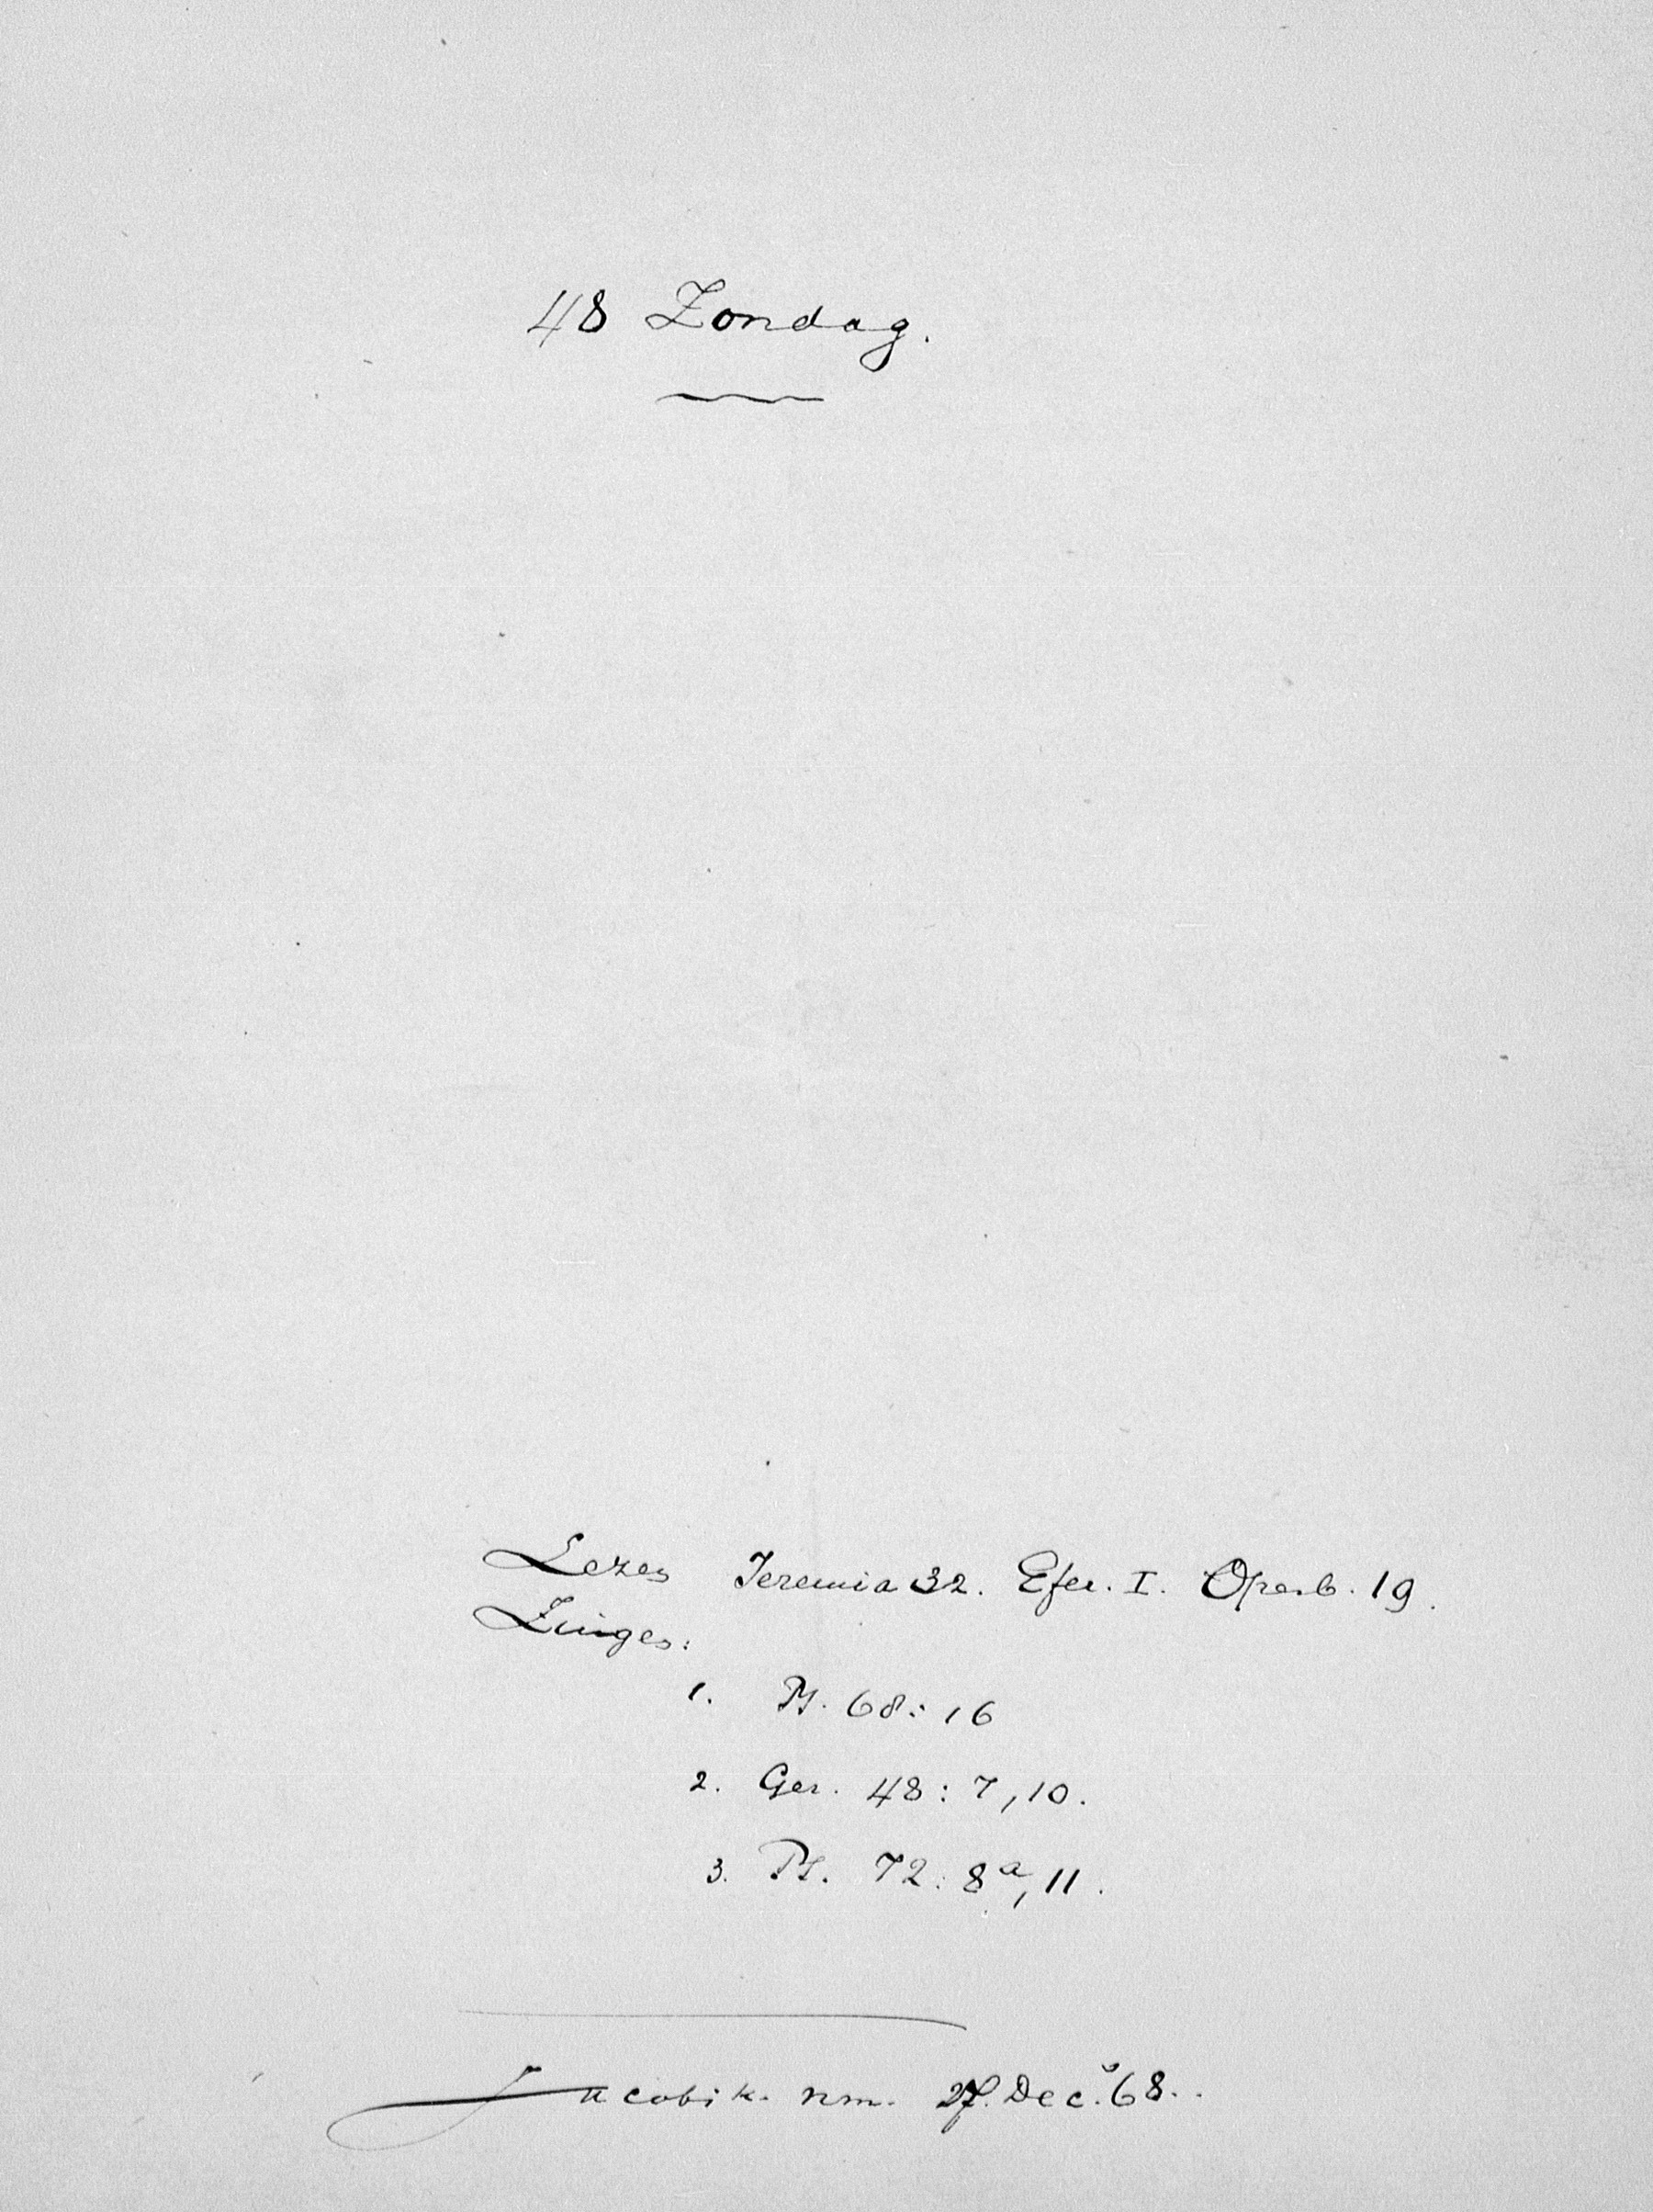 48 Zondag.
Lezen Jeremia 32. Efez. I. Openb. 19.
Zingen:
1. Ps. 68:16
2. Gez. 48:7,10.
3. Ps. 72:8a,11.
Jacobik. nm. 27. Dec. 68.